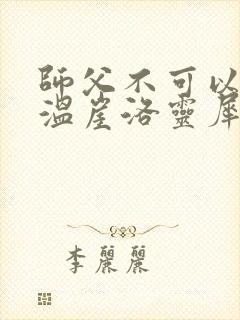 師父不可以
溫崖洛靈犀
李麗麗